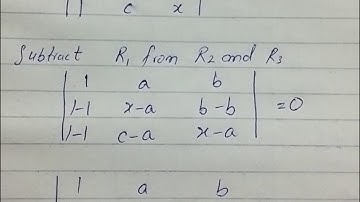 | 1 c x |
Subtract R₁ from R₂ and R₃
| 1 a b |
| 1-1 x-a b-b | =0
| 1-1 c-a x-a |
| 1 a b